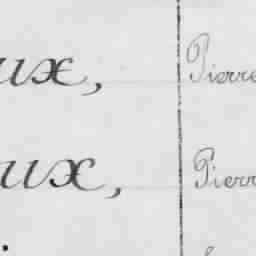 ux, Pierre
ux, Pierr